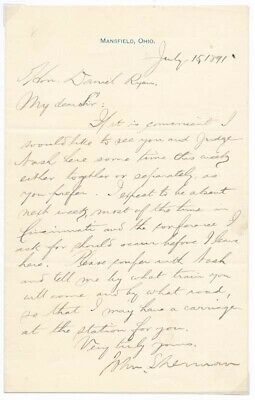 MANSFIELD, OHIO.
July 15 1891
Hon Daniel Ryan,
My dear Sir:
If it is convenient I
would like to see you and Judge
Nash here some time this week
either together or separately, as
you prefer. I expect to be absent
next week most of the time in
Cincinnati and the conference I
ask for should occur before I leave
here. Please confer with Nash
and tell me by what train you
will come and by what road,
so that I may have a carriage
at the station for you.
Very truly yours,
John Sherman